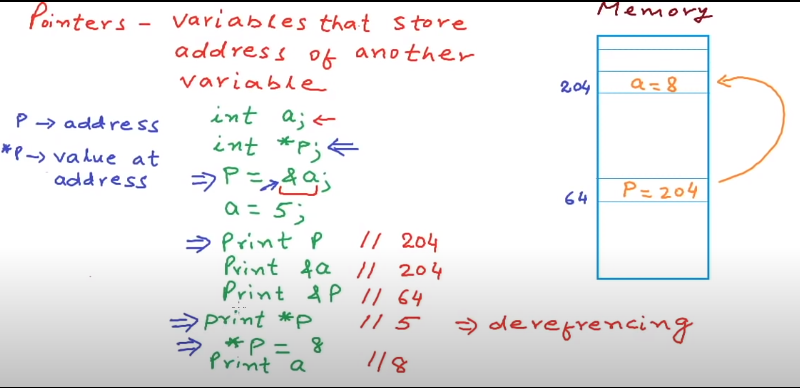 Pointers - variables that store
address of another
variable
P → address
*P → value at
address
int a; ←
int *P; ⇐
⇒ P = &a;
a = 5;
⇒ Print P // 204
Print &a // 204
Print &P // 64
⇒ print *P // 5 ⇒ derefrencing
⇒ *P = 8
Print a // 8
Memory
204 a = 8
64 P = 204